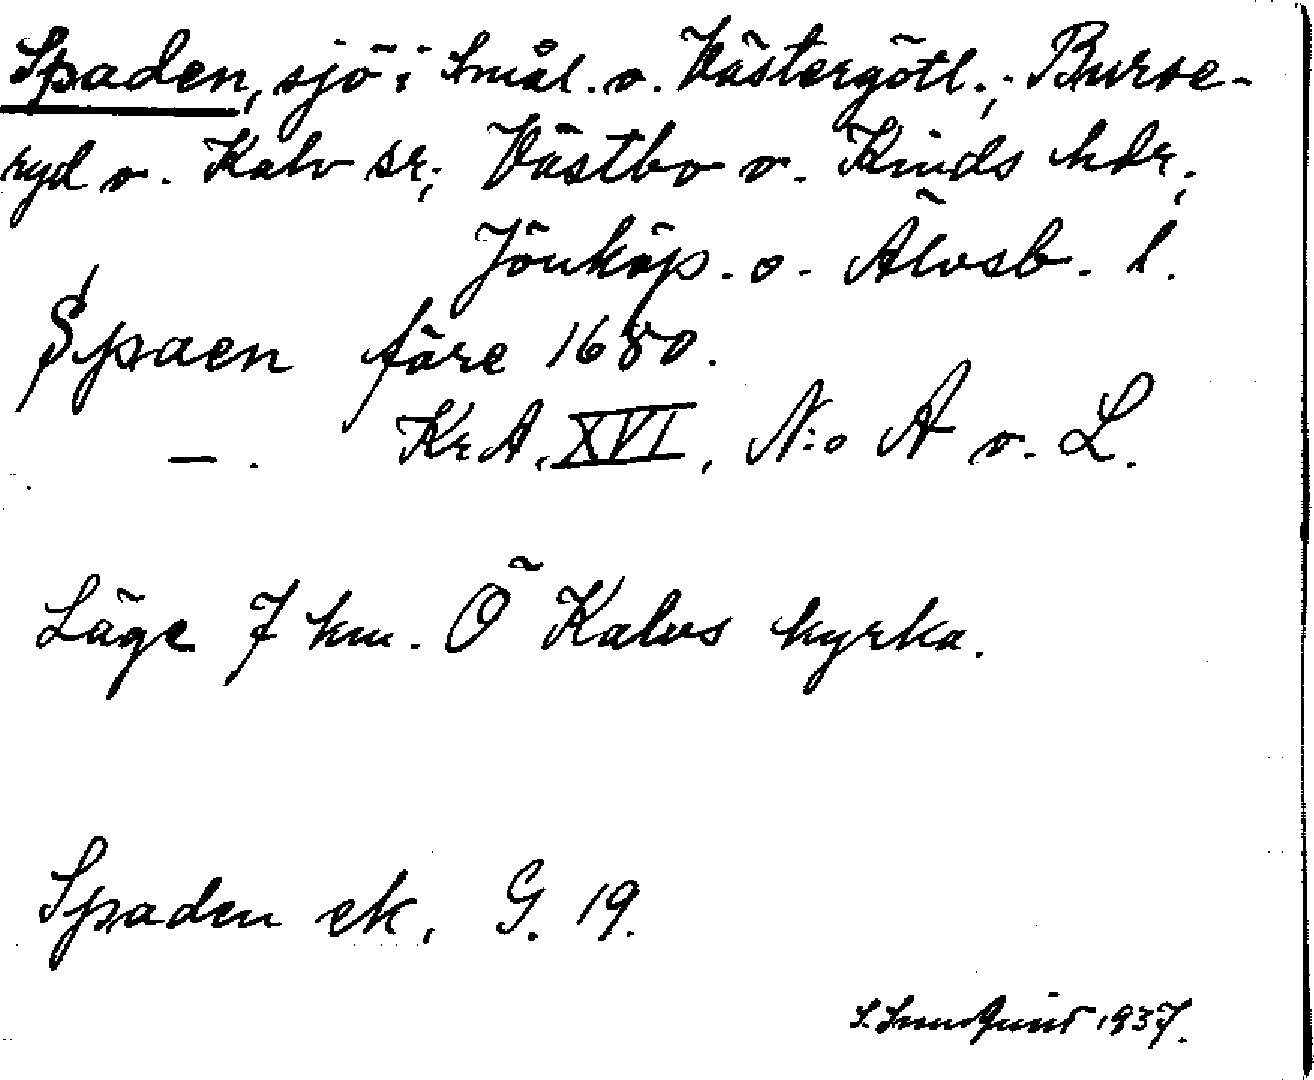 Spaden, sjö i Smål. o. Västergötl.; Burse-
ryd o. Kalv sr; Västbo o. Kinds hdr;
Jönköp. o. Älvsb. l.
Spaen före 1680.
—. KrA, XVI, N:o Ä o. L.
Läge 7 km. Ö Kalvs kyrka.
Spaden ek. G. 19.
1937.